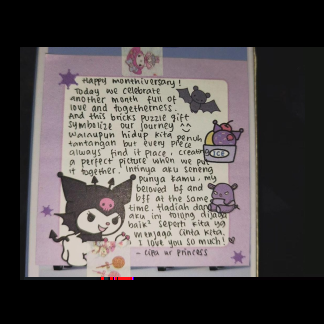 Happy monthiversary!
Today we celebrate
another month full of
love and togetherness.
And this bricks puzzle gift
symbolize our journey ^^
walaupun hidup kita penuh
tantangan but every piece
always find it place, creating
a perfect picture when we put
it together. Intinya aku seneng
punya kamu, my
beloved bf and
bff at the same
time. Hadiah dari
aku im tolong dijaga
baik² seperti kita yg
menjaga cinta kita.
I love you so much!
- ur princess
ICE